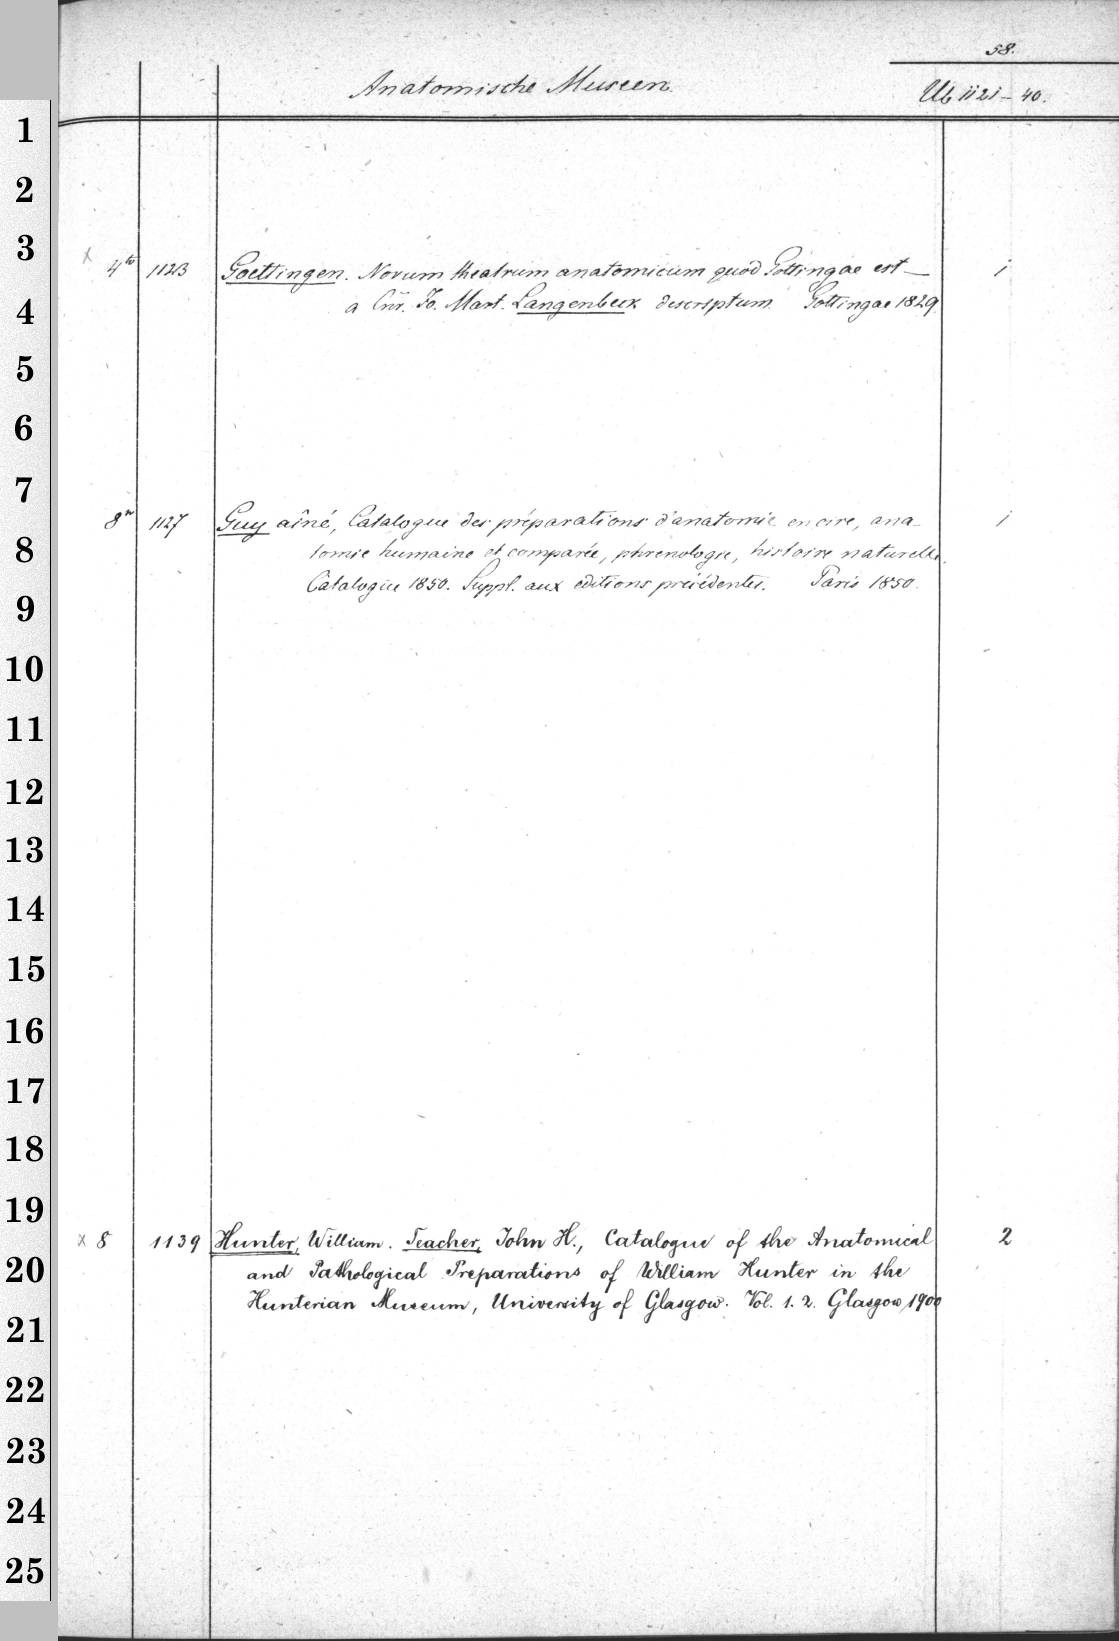 58.
Anatomische Museen.
Ub 1121-40.
1
2
3
x 4to 1123 Goettingen. Novum theatrum anatomicum quod Gottingae est— 1
4
a Chr. Jo. Mart. Langenbeck descriptum. Gottingae 1829.
5
6
7
8vo 1127 Guy aîné, Catalogue des préparations d'anatomie en cire, ana- 1
8
tomie humaine et comparée, phrenologie, histoire naturelle.
Catalogue 1850. Suppl. aux editions précédentes. Paris 1850.
9
10
11
12
13
14
15
16
17
18
19
x 8 1139 Hunter, William. Teacher, John H., Catalogue of the Anatomical 2
20
and Pathological Preparations of William Hunter in the
Hunterian Museum, University of Glasgow. Vol. 1. 2. Glasgow 1900
21
22
23
24
25